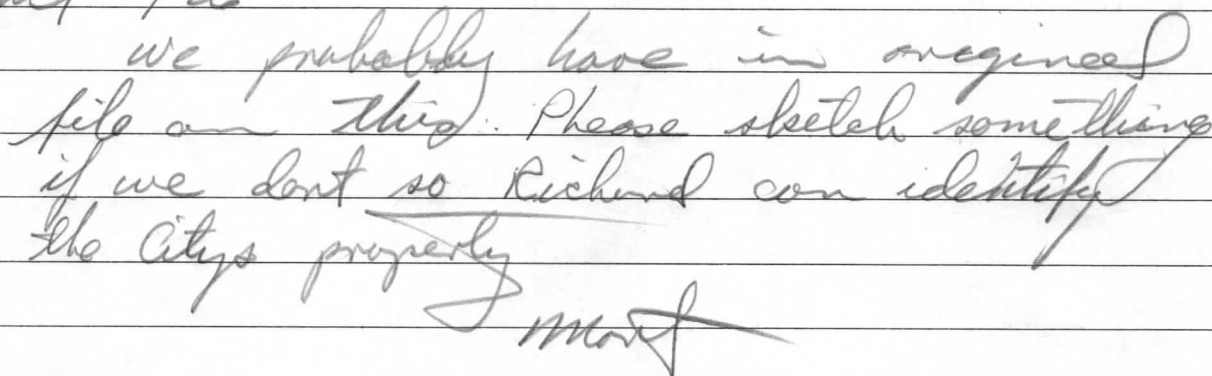 we probably have in original
file on this. Please sketch something
if we dont so Richard can identify
the Citys property
Mort